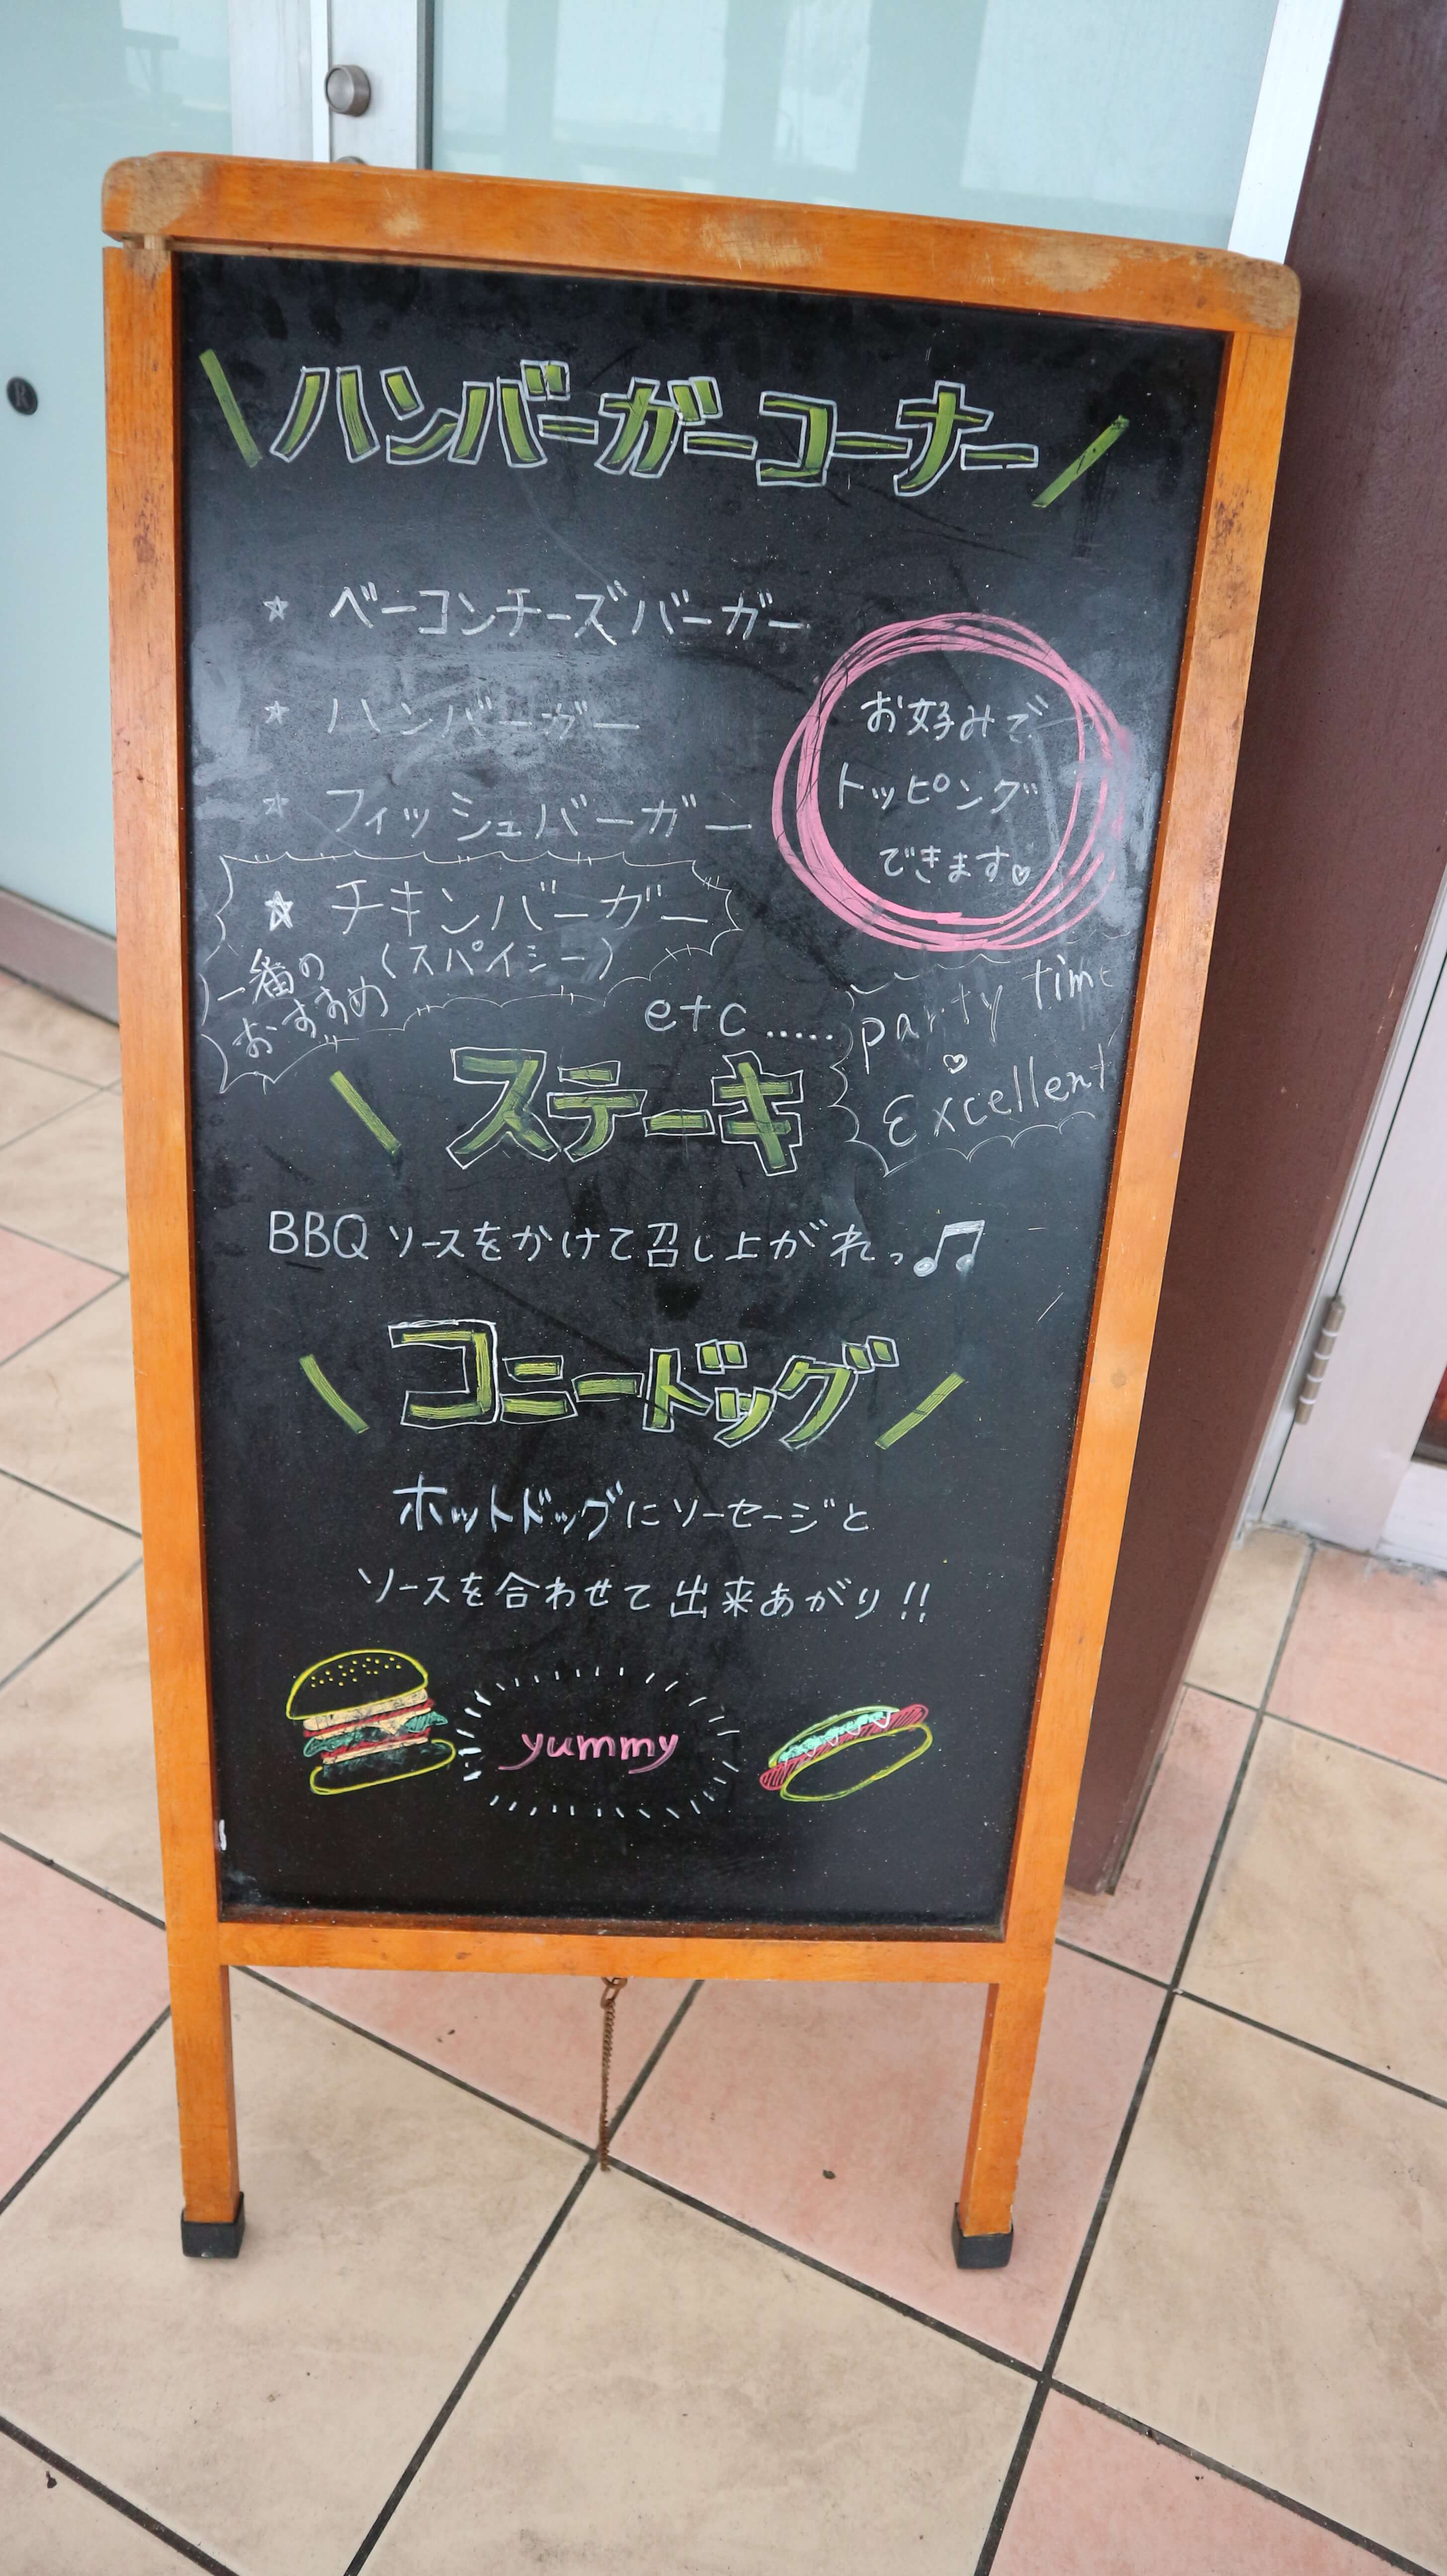 \ ハンバーガーコーナー /
☆ ベーコンチーズバーガー
☆ ハンバーガー
☆ フィッシュバーガー
お好みで
トッピング
できます♡
☆ チキンバーガー
(スパイシー)
一番の
おすすめ
etc.....
party time
♡
Excellent
\ ステーキ
BBQ ソースをかけて召し上がれっ♫
\ コニードッグ /
ホットドッグにソーセージと
ソースを合わせて出来あがり!!
yummy
R